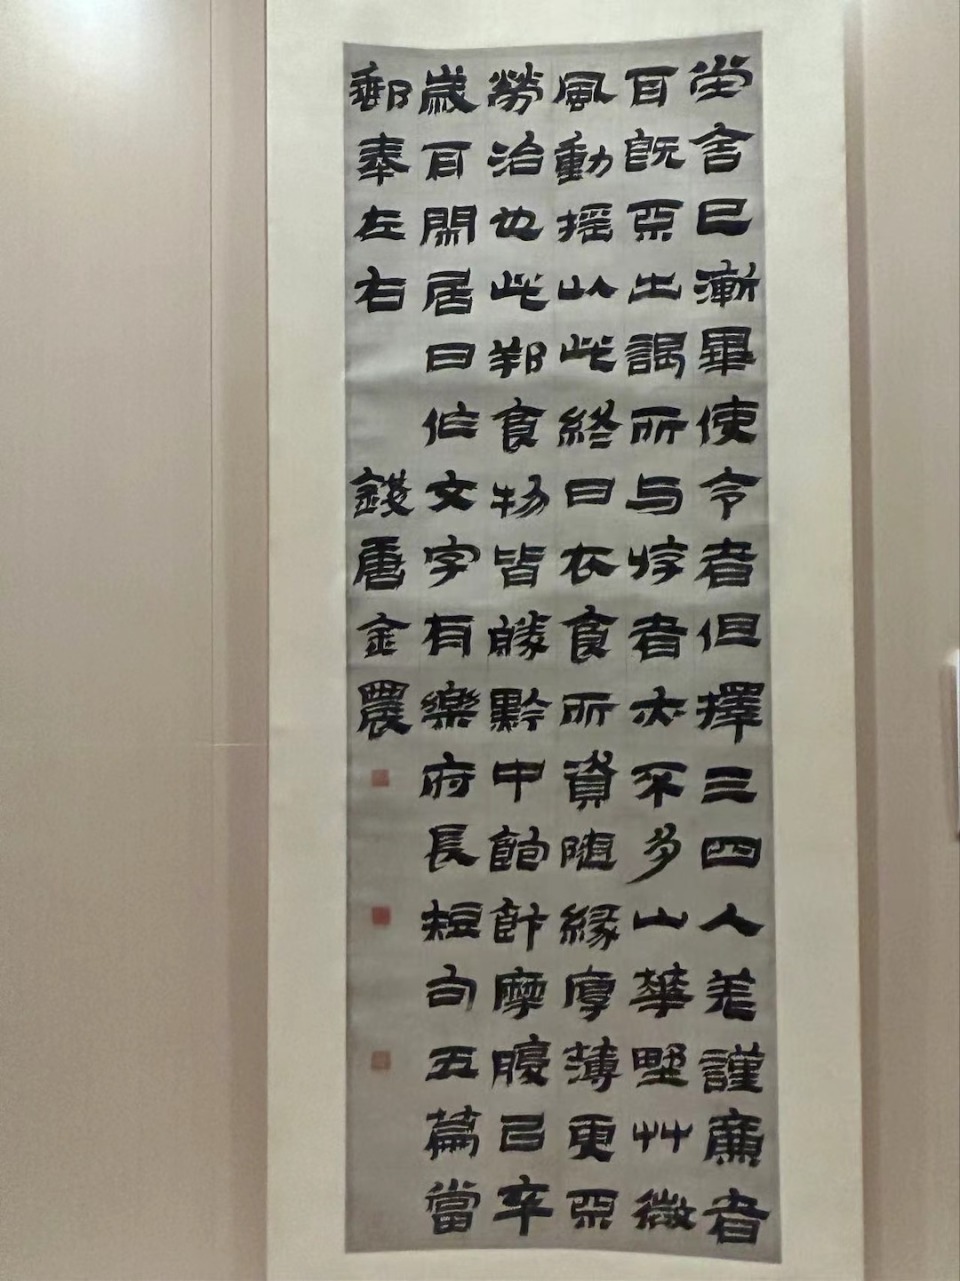 舍已漸畢使令者但擇三四人差謹廉者
耳既不出謁所与游者亦不多山華野艸微
風動搖以此終日衣食所資随緣厚薄更不
勞治也此邦食物皆勝黔中飽飰摩腹已卒
歲耳閑居日作文字有樂府長短句五篇當
郵奉左右 錢唐金農